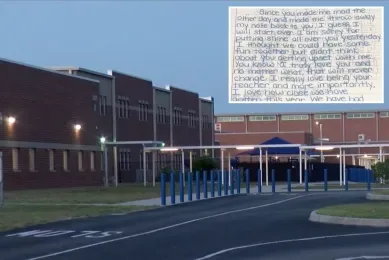 Since you made me mad the
other day and made me throw away
my note back to you, I guess I
will start over. I am sorry for
putting slime all over you yesterday.
I thought we could have some
fun together but didn't think
about you getting upset with me.
You know I truly love you and
no matter what, that will never
change. I really love being your
teacher and more importantly,
I love how close we have
gotten this year. We have had
STOP